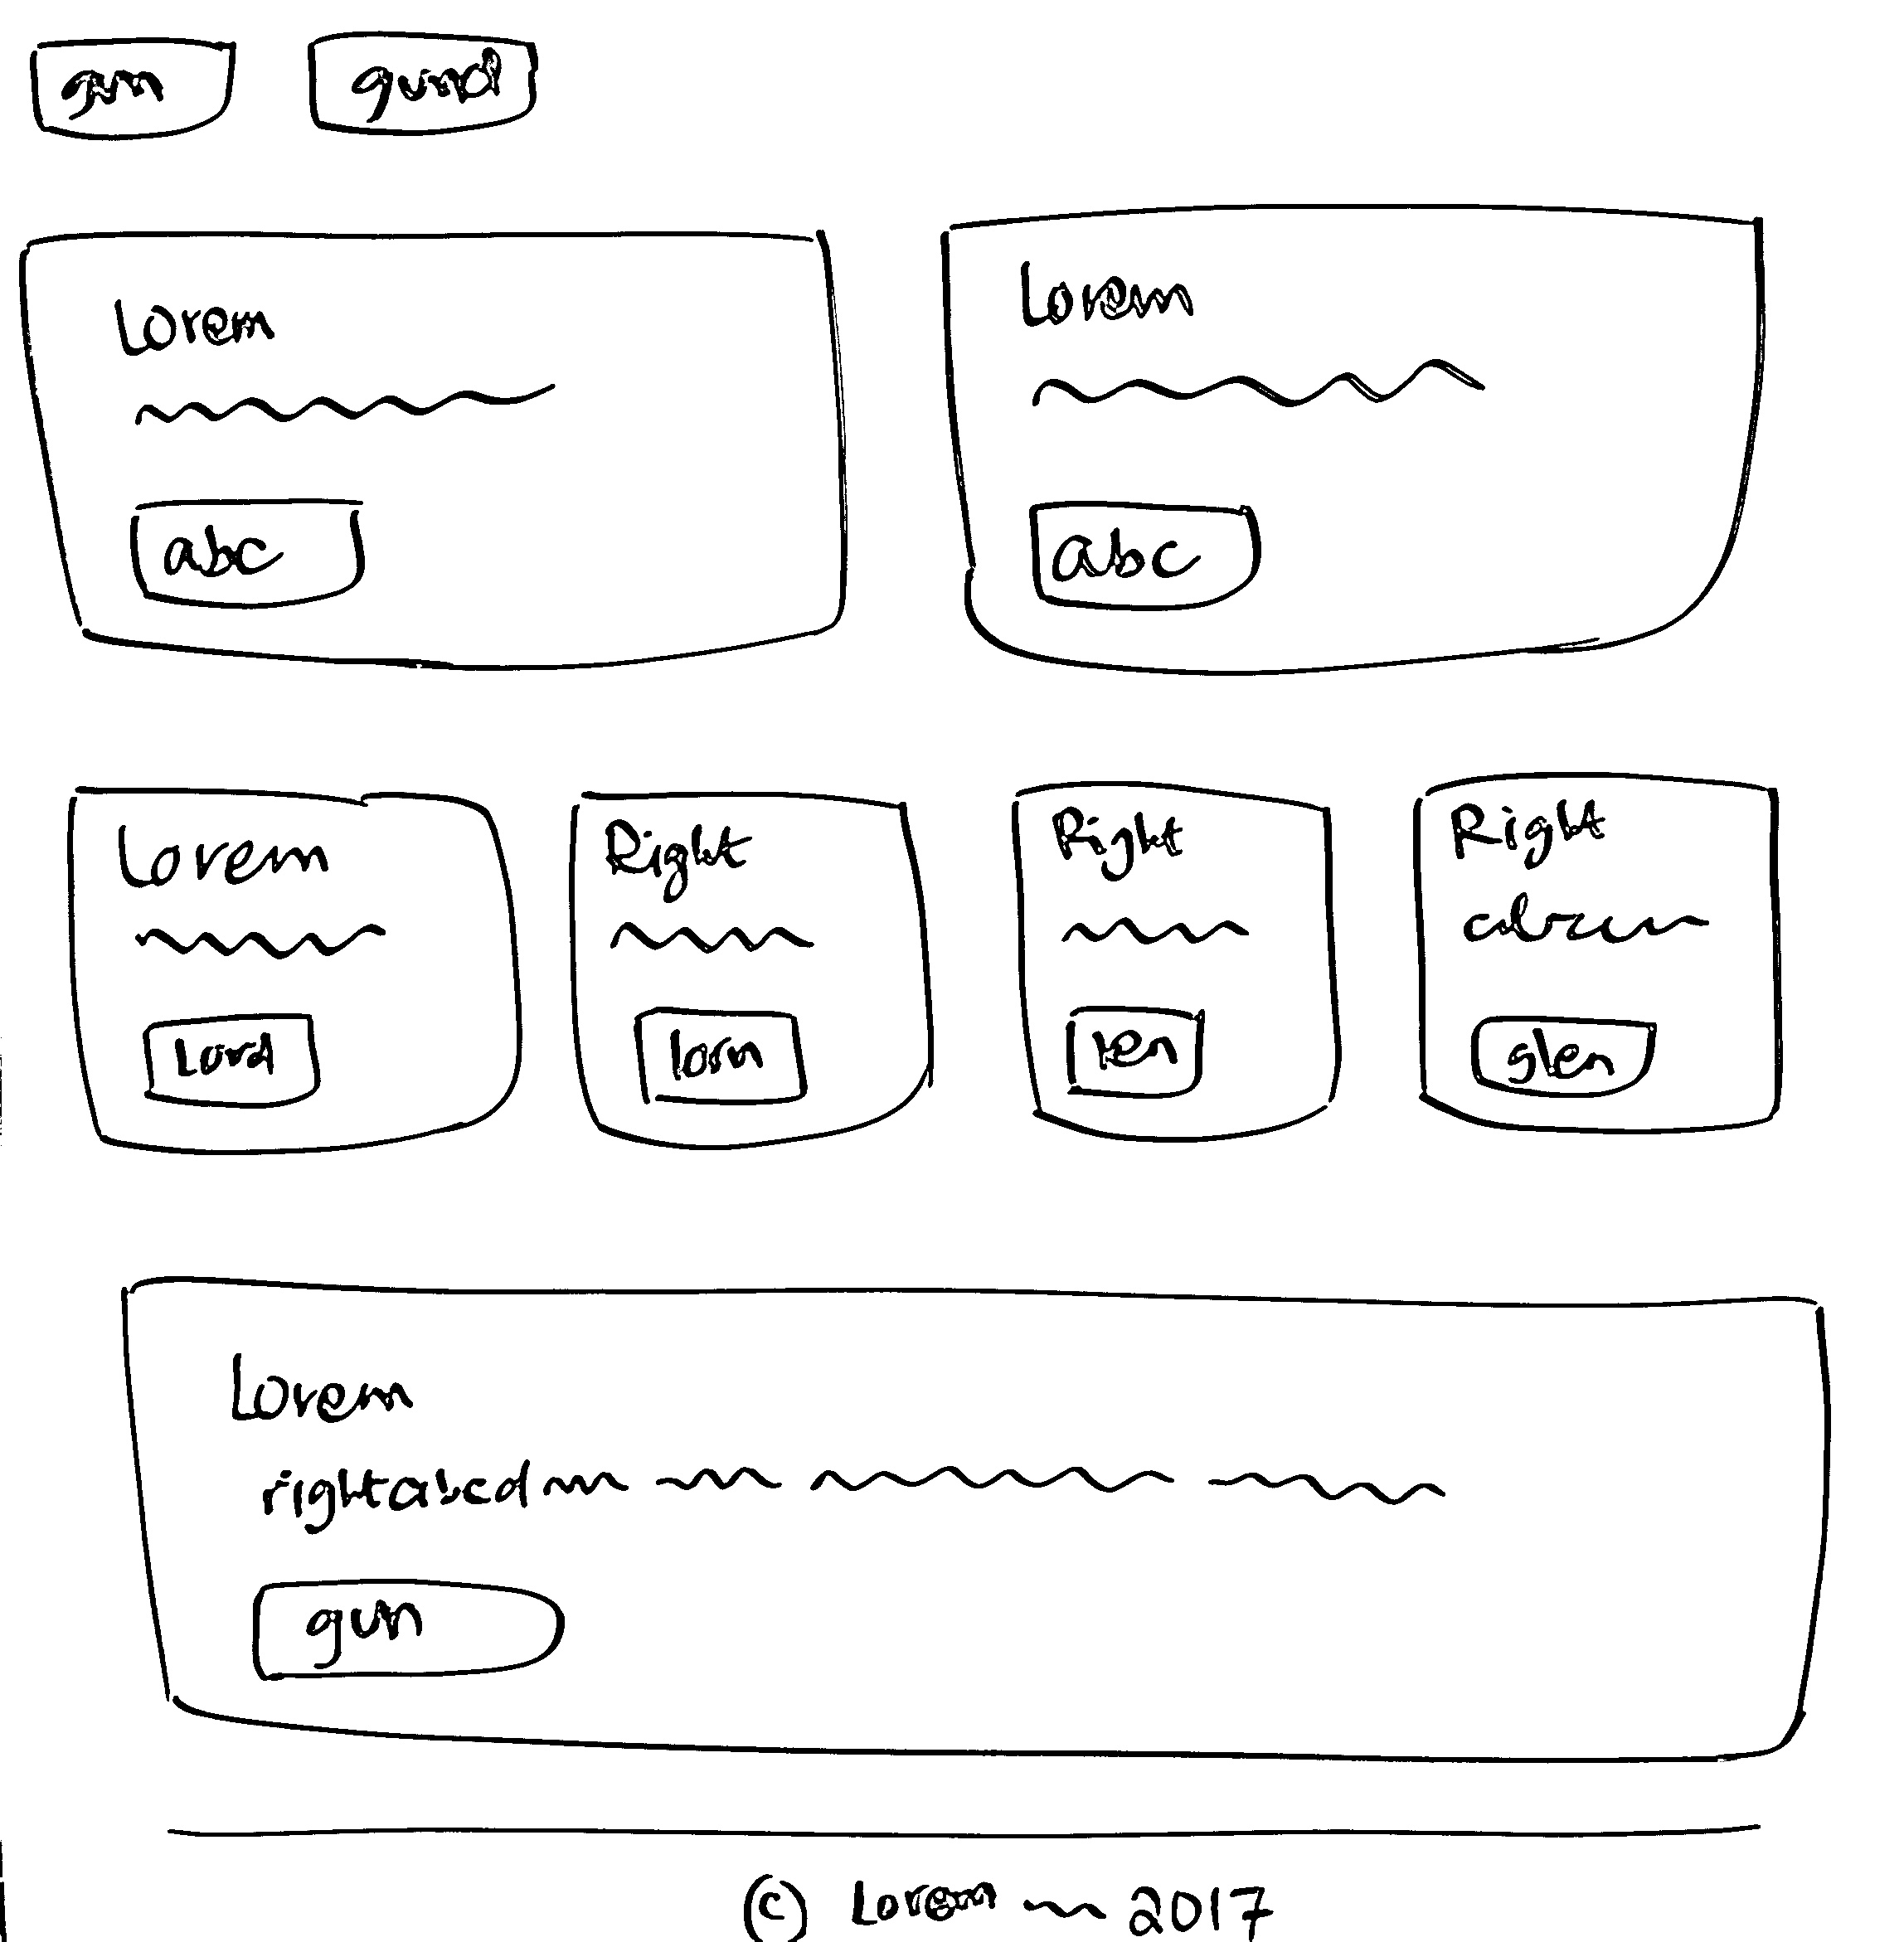 gun
gund
Lorem
abc
Lorem
abc
Lorem
Lord
Right
lorn
Right
ren
Right
glen
Lorem
rightabcd
gun
© Lorem 2017